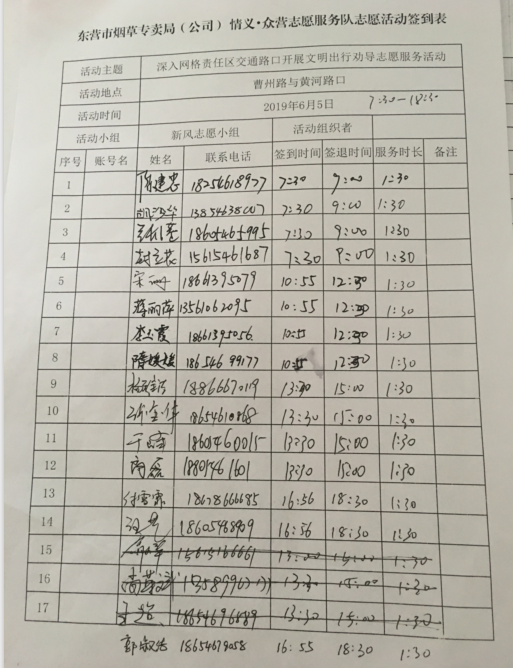 东营市烟草专卖局（公司）情义·众营志愿服务队志愿活动签到表
活动主题 深入网格责任区交通路口开展文明出行劝导志愿服务活动
活动地点 曹州路与黄河路口
活动时间 2019年6月5日 7:30-18:30
活动小组 新风志愿小组 活动组织者
序号 账号名 姓名 联系电话 签到时间 签退时间 服务时长 备注
1 18254618977 7:30 9:00 1:30
2 7:30 9:00 1:30
3 18605465995 7:30 9:00 1:30
4 15615461687 7:30 9:00 1:30
5 18661395079 10:55 12:30 1:30
6 蒋丽萍 13561062095 10:55 12:30 1:30
7 李玉霞 18661395056 10:55 12:30 1:30
8 隋媛媛 18654699177 10:55 12:30 1:30
9 18866670119 13:30 15:00 1:30
10 18654610868 13:30 15:00 1:30
11 18604460015 13:30 15:00 1:30
12 18801461601 13:30 15:00 1:30
13 付雪霏 18678666685 16:56 18:30 1:30
14 18605468909 16:56 18:30 1:30
15 15:00 1:30
16 13:30 15:00 1:30
17 18654696689 13:30 15:00 1:30
郭淑洁 18654679058 16:55 18:30 1:30